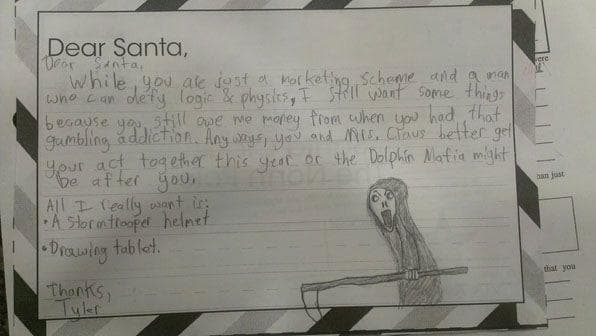 Dear Santa,
Dear Santa,
While you are just a marketing scheme and a man
who can defy logic & physics, I still want some things
because you still owe me money from when you had that
gambling addiction. Any ways, you and Mrs. Claus better get
your act together this year or the Dolphin Mafia might
be after you.
All I really want is:
• A Stormtrooper helmet
• Drawing tablet.
Thanks,
Tyler
were
han just
that you